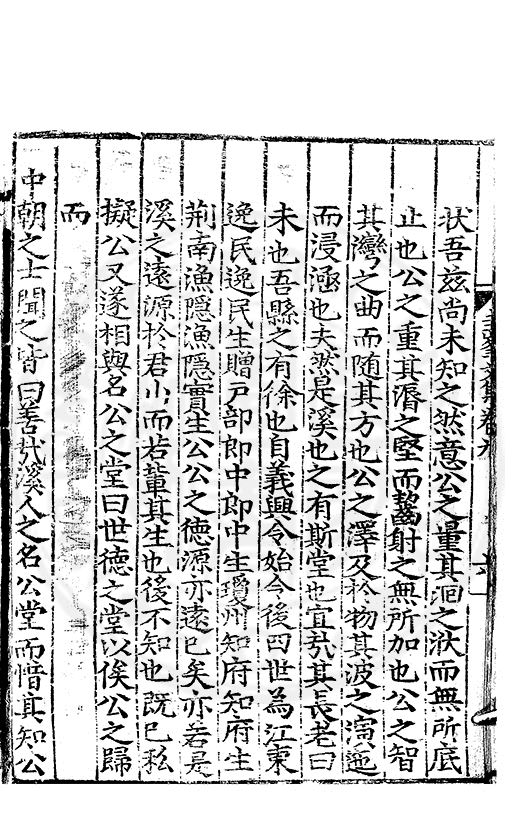 状吾兹尚未知之然意公之量其洄之洑而無所底
止也公之重其漘之堅而齧射之無所加也公之智
其灣之曲而随其方也公之澤及於物其波之演迤
而浸滋也夫然是溪也之有斯堂也宜㢤其長老曰
未也吾縣之有徐也自義興令始令後四世為江東
逸民逸民生贈户部郎中郎中生瓊州知府知府生
荆南漁隱漁隱實生公公之徳源亦遠已矣亦若是
溪之遠源於君山而若輩其生也後不知也既已私
擬公又遂相與名公之堂曰世徳之堂以俟公之歸
而
中朝之士聞之皆曰善㢤溪人之名公堂而惜其知公
文集卷九
六